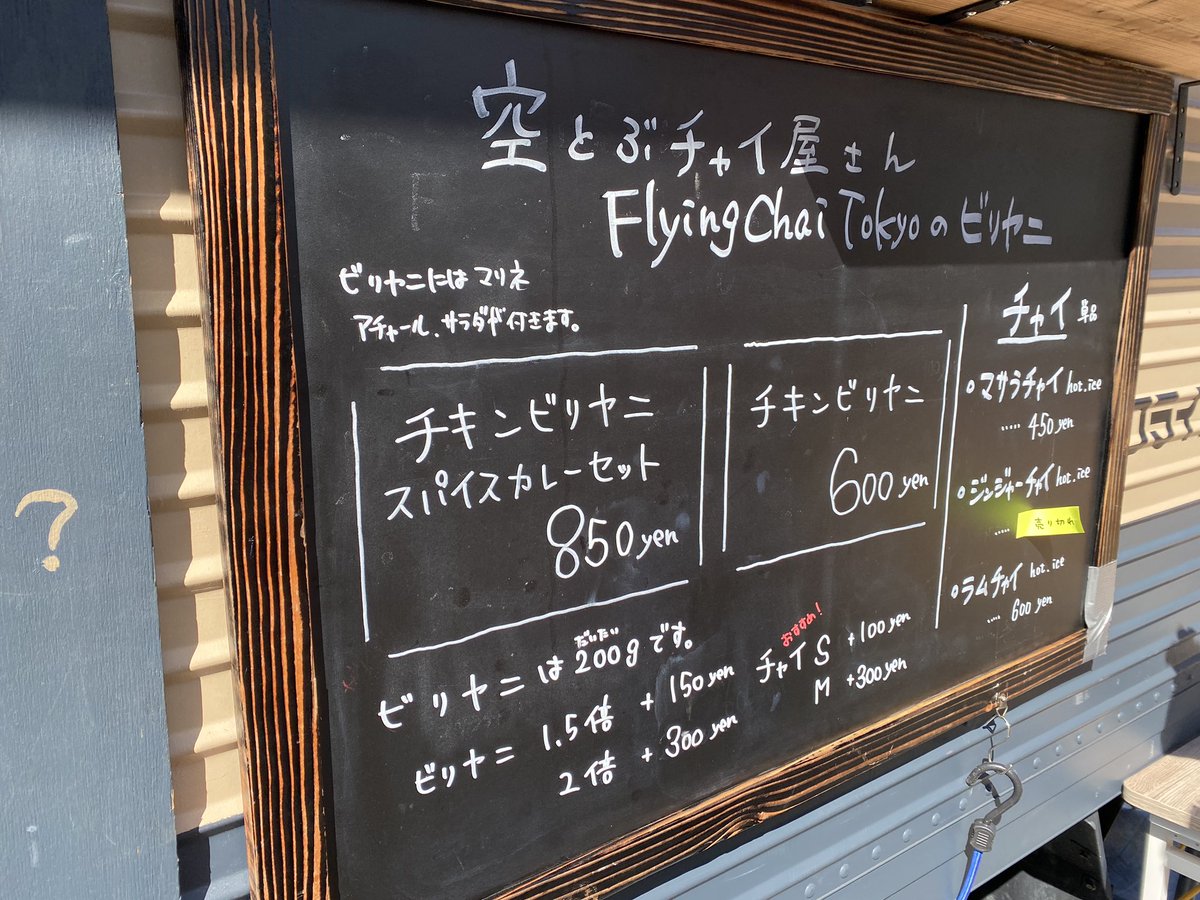 空とぶチャイ屋さん
Flying Chai Tokyoのビリヤニ
ビリヤニにはマリネ
アチャール、サラダが付きます。
チキンビリヤニ
スパイスカレーセット
850yen
チキンビリヤニ
600yen
チャイ 単品
マサラチャイ hot.ice
..... 450yen
ジンジャーチャイ hot.ice
..... 売り切れ
ラムチャイ hot.ice
.... 600yen
だいたい
ビリヤニは200gです。
ビリヤニ 1.5倍 +150yen
2倍 +300yen
おすすめ!
チャイS +100yen
M +300yen
?